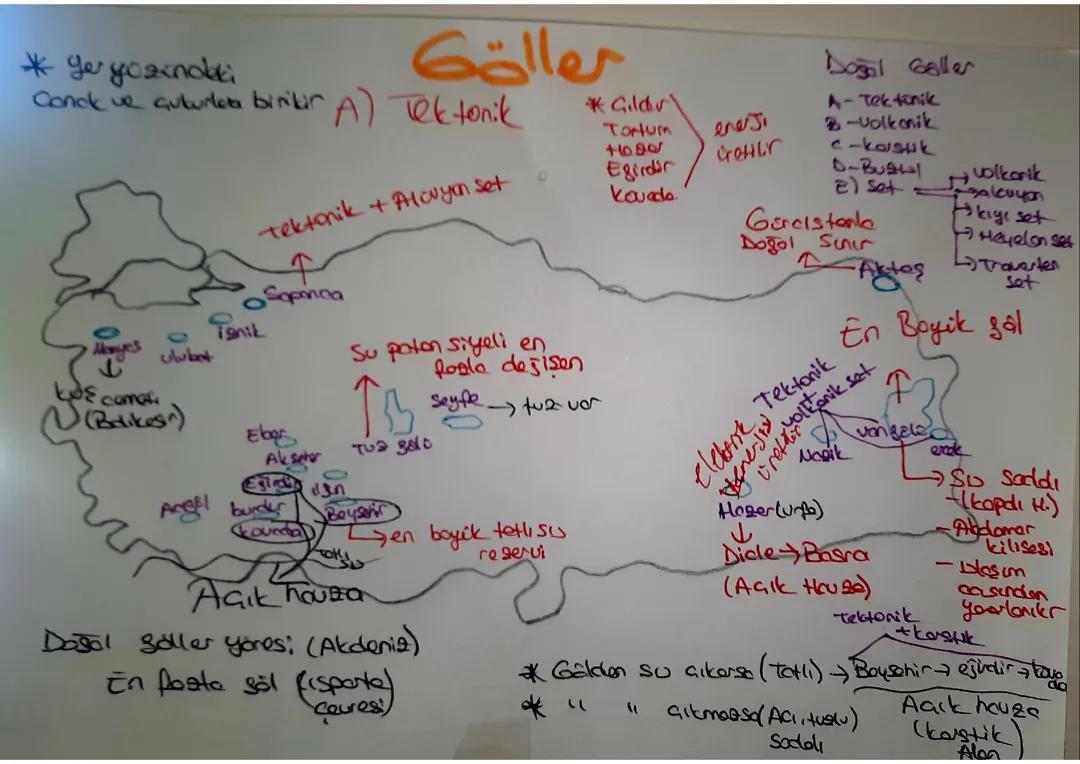 Göller
* yer yüzündeki
Çanak ve çukurlara birikir
A) Tektonik
* Çıldır
Tortum
Hazar
Eğirdir
Kovada
enerji
üretilir
Doğal Göller
A- Tektonik
B-Volkanik
C-karstik
D-Buzul
E) Set
volkanik
alüvyon
kıyı set
Heyelan set
Traverten
set
Tektonik + Alüvyon set
Sapanca
iznik
Ulubat
Manyas
kuş cenneti
(Balıkesir)
Gürcistanla
Doğal Sınır
Aktaş
En Büyük göl
Su potansiyeli en
fazla değişen
Tuz gölü
Seyfe → tuz var
Tektonik
+
volkanik set
Van gölü
Nazik
erçek
Elektrik
enerjisi
üretilir
Hazar (urfa)
Dicle → Basra
(Açık Havza)
Su Soddı
(kapalı H.)
- Akdamar
kilisesi
- Ulaşım
açısından
yararlanılır
Eber
Akşehir
Eğirdir
ılgın
Acıgöl
burdur
Beyşehir
kovada
tatlı
su
en büyük tatlı su
rezervi
Açık havza
Doğal göller yöresi (Akdeniz)
En fazla göl (ısparta)
Çevresi)
tektonik
+karstik
* Gölden su çıkarsa (Tatlı) → Beyşehir → eğirdir → kovada
* " " çıkmazsa (Acı, tuzlu)
Sodalı
Açık havza
(karstik
Alan)